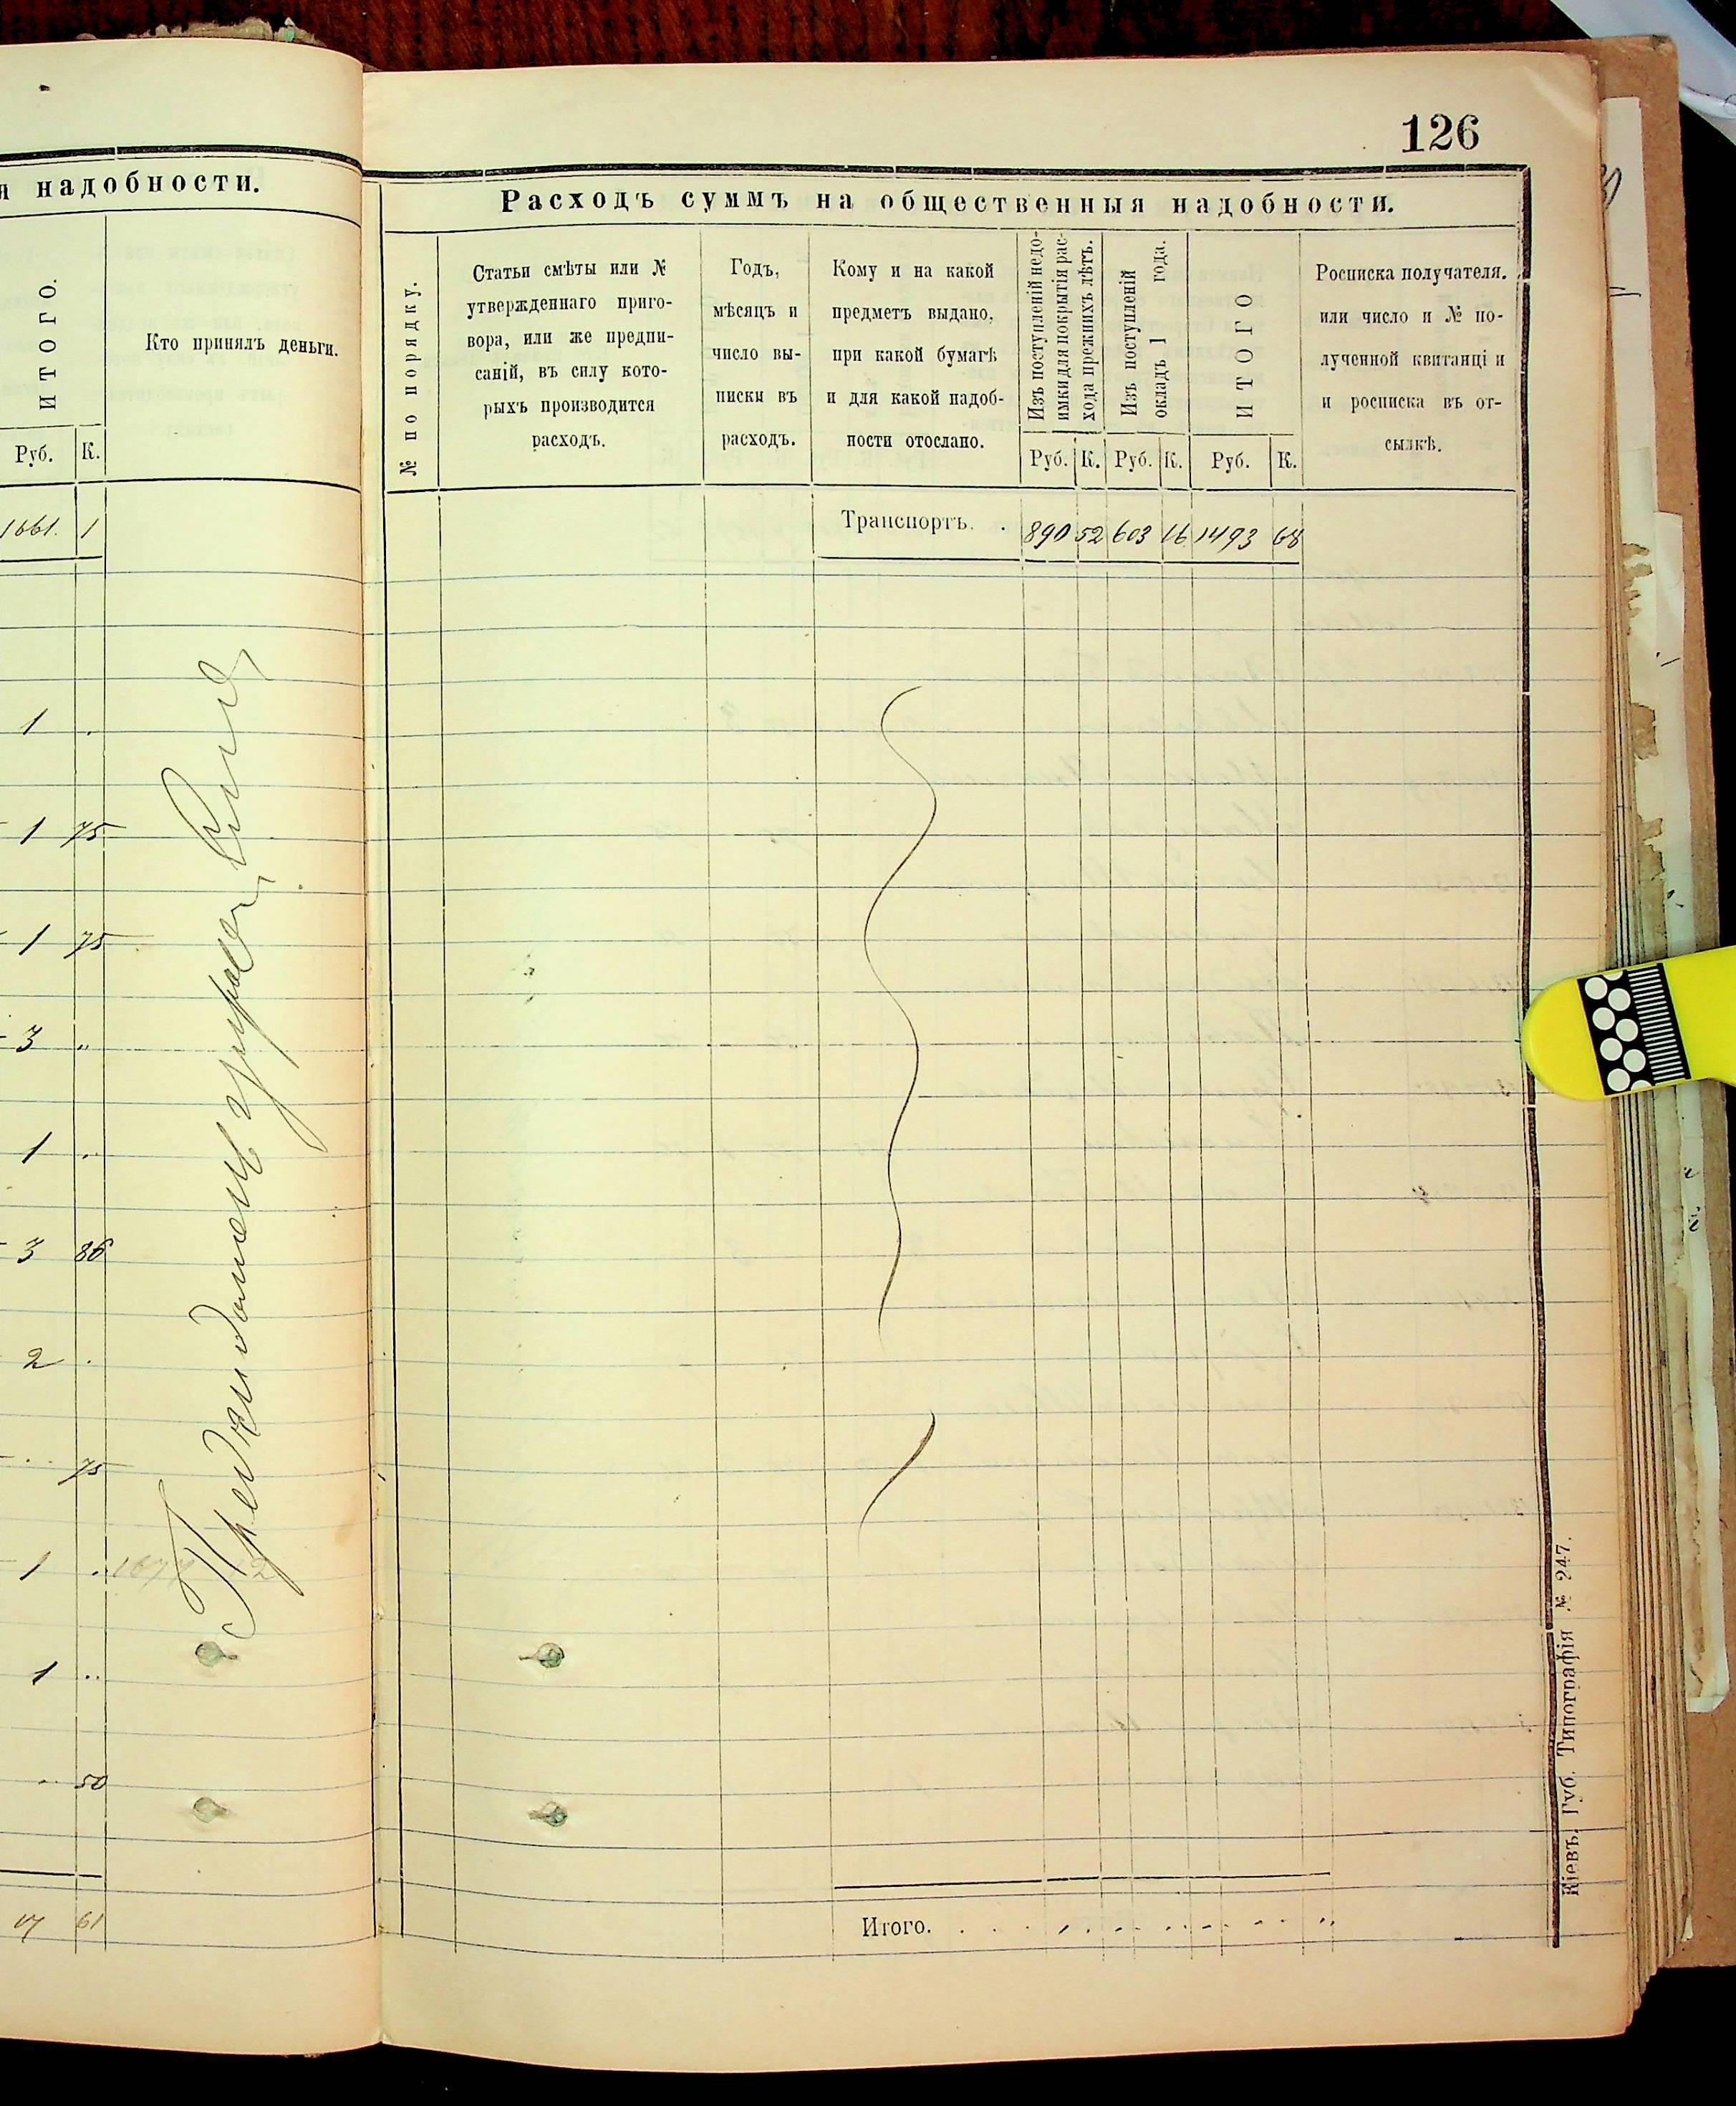 я надобности.
ИТОГО.
Кто принялъ деньги.
Руб. К.
1661. 1
1 .
1 75
1 75
3 „
1 .
3 86
2 .
75
1 .
1 ..
50
17 61
126
Расходъ суммъ на общественныя надобности.
№ по порядку.
Статьи смѣты или №
утвержденнаго приго-
вора, или же предпи-
саній, въ силу кото-
рыхъ производится
расходъ.
Годъ,
мѣсяцъ и
число вы-
писки въ
расходъ.
Кому и на какой
предметъ выдано,
при какой бумагѣ
и для какой надоб-
ности отослано.
Изъ поступленій недо-
имки для покрытія рас-
хода прежнихъ лѣтъ.
Изъ поступленій
окладъ 1 года.
ИТОГО
Росписка получателя.
или число и № по-
лученной квитанціи
и росписка въ от-
сылкѣ.
Руб. К. Руб. К. Руб. К.
Транспортъ. . 890 52 603 16 1493 68
Итого. . . .
Кіевъ, Губ. Типографія № 247.